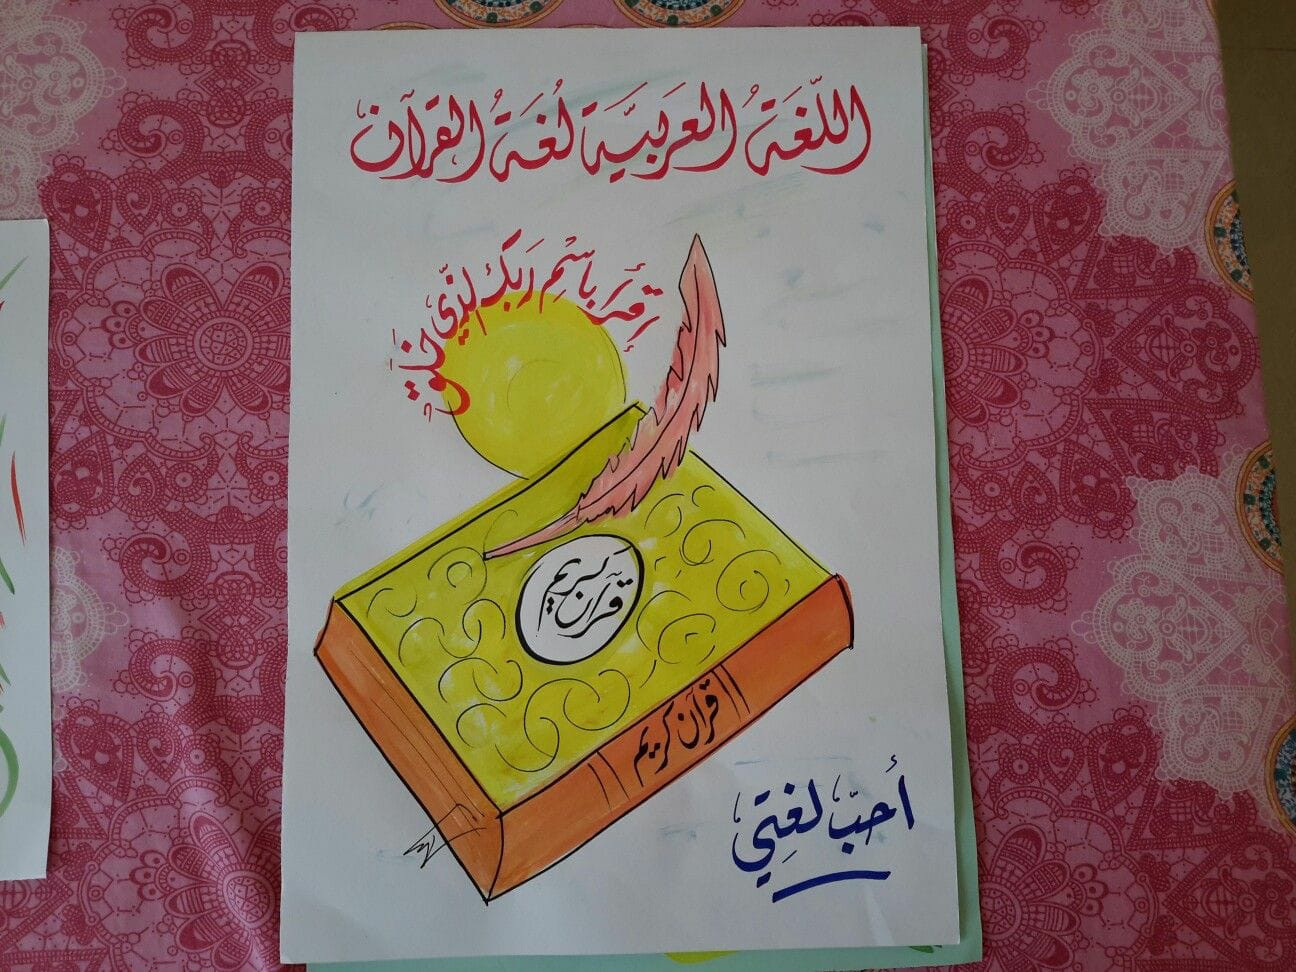 اللّغَةُ العَرَبيَّة لُغَةُ القرآن
إقرَأ باسْمِ رَبَكَ الذّي خَلَقَ
قرآن كريم
قرآن كريم
أحبّ لغَتِي